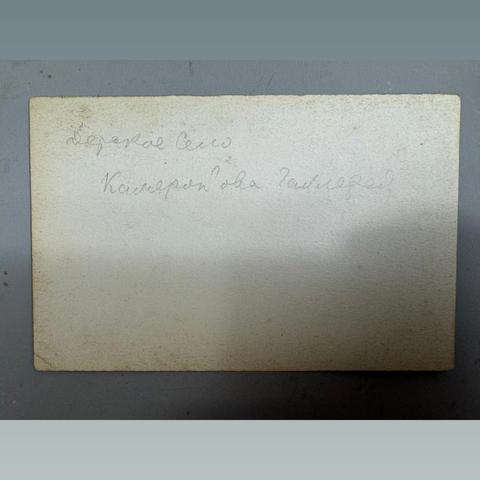 Детское Село
Камеронова Галлерея